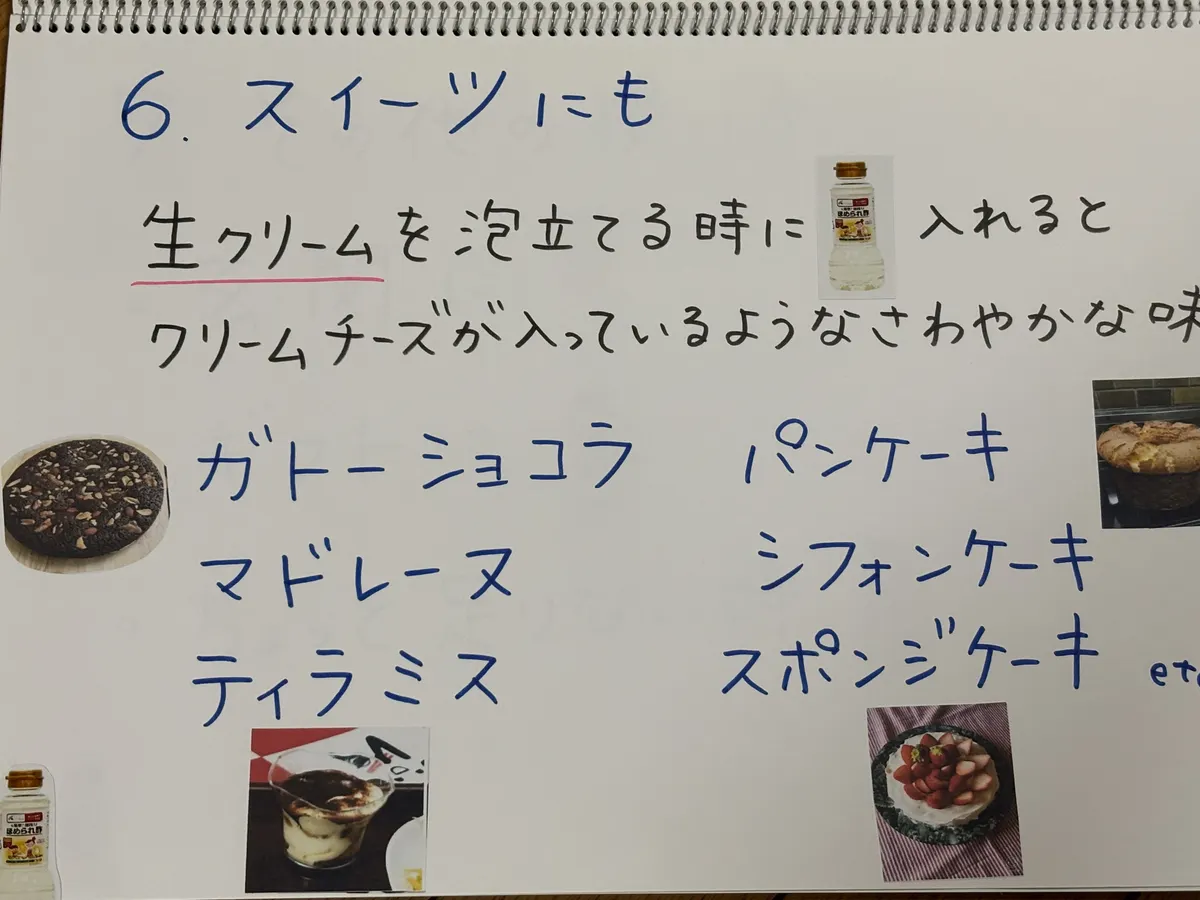 6. スイーツにも
生クリームを泡立てる時に ほめられ酢 入れると
クリームチーズが入っているようなさわやかな味
ガトーショコラ パンケーキ
マドレーヌ シフォンケーキ
ティラミス スポンジケーキ etc
ほめられ酢